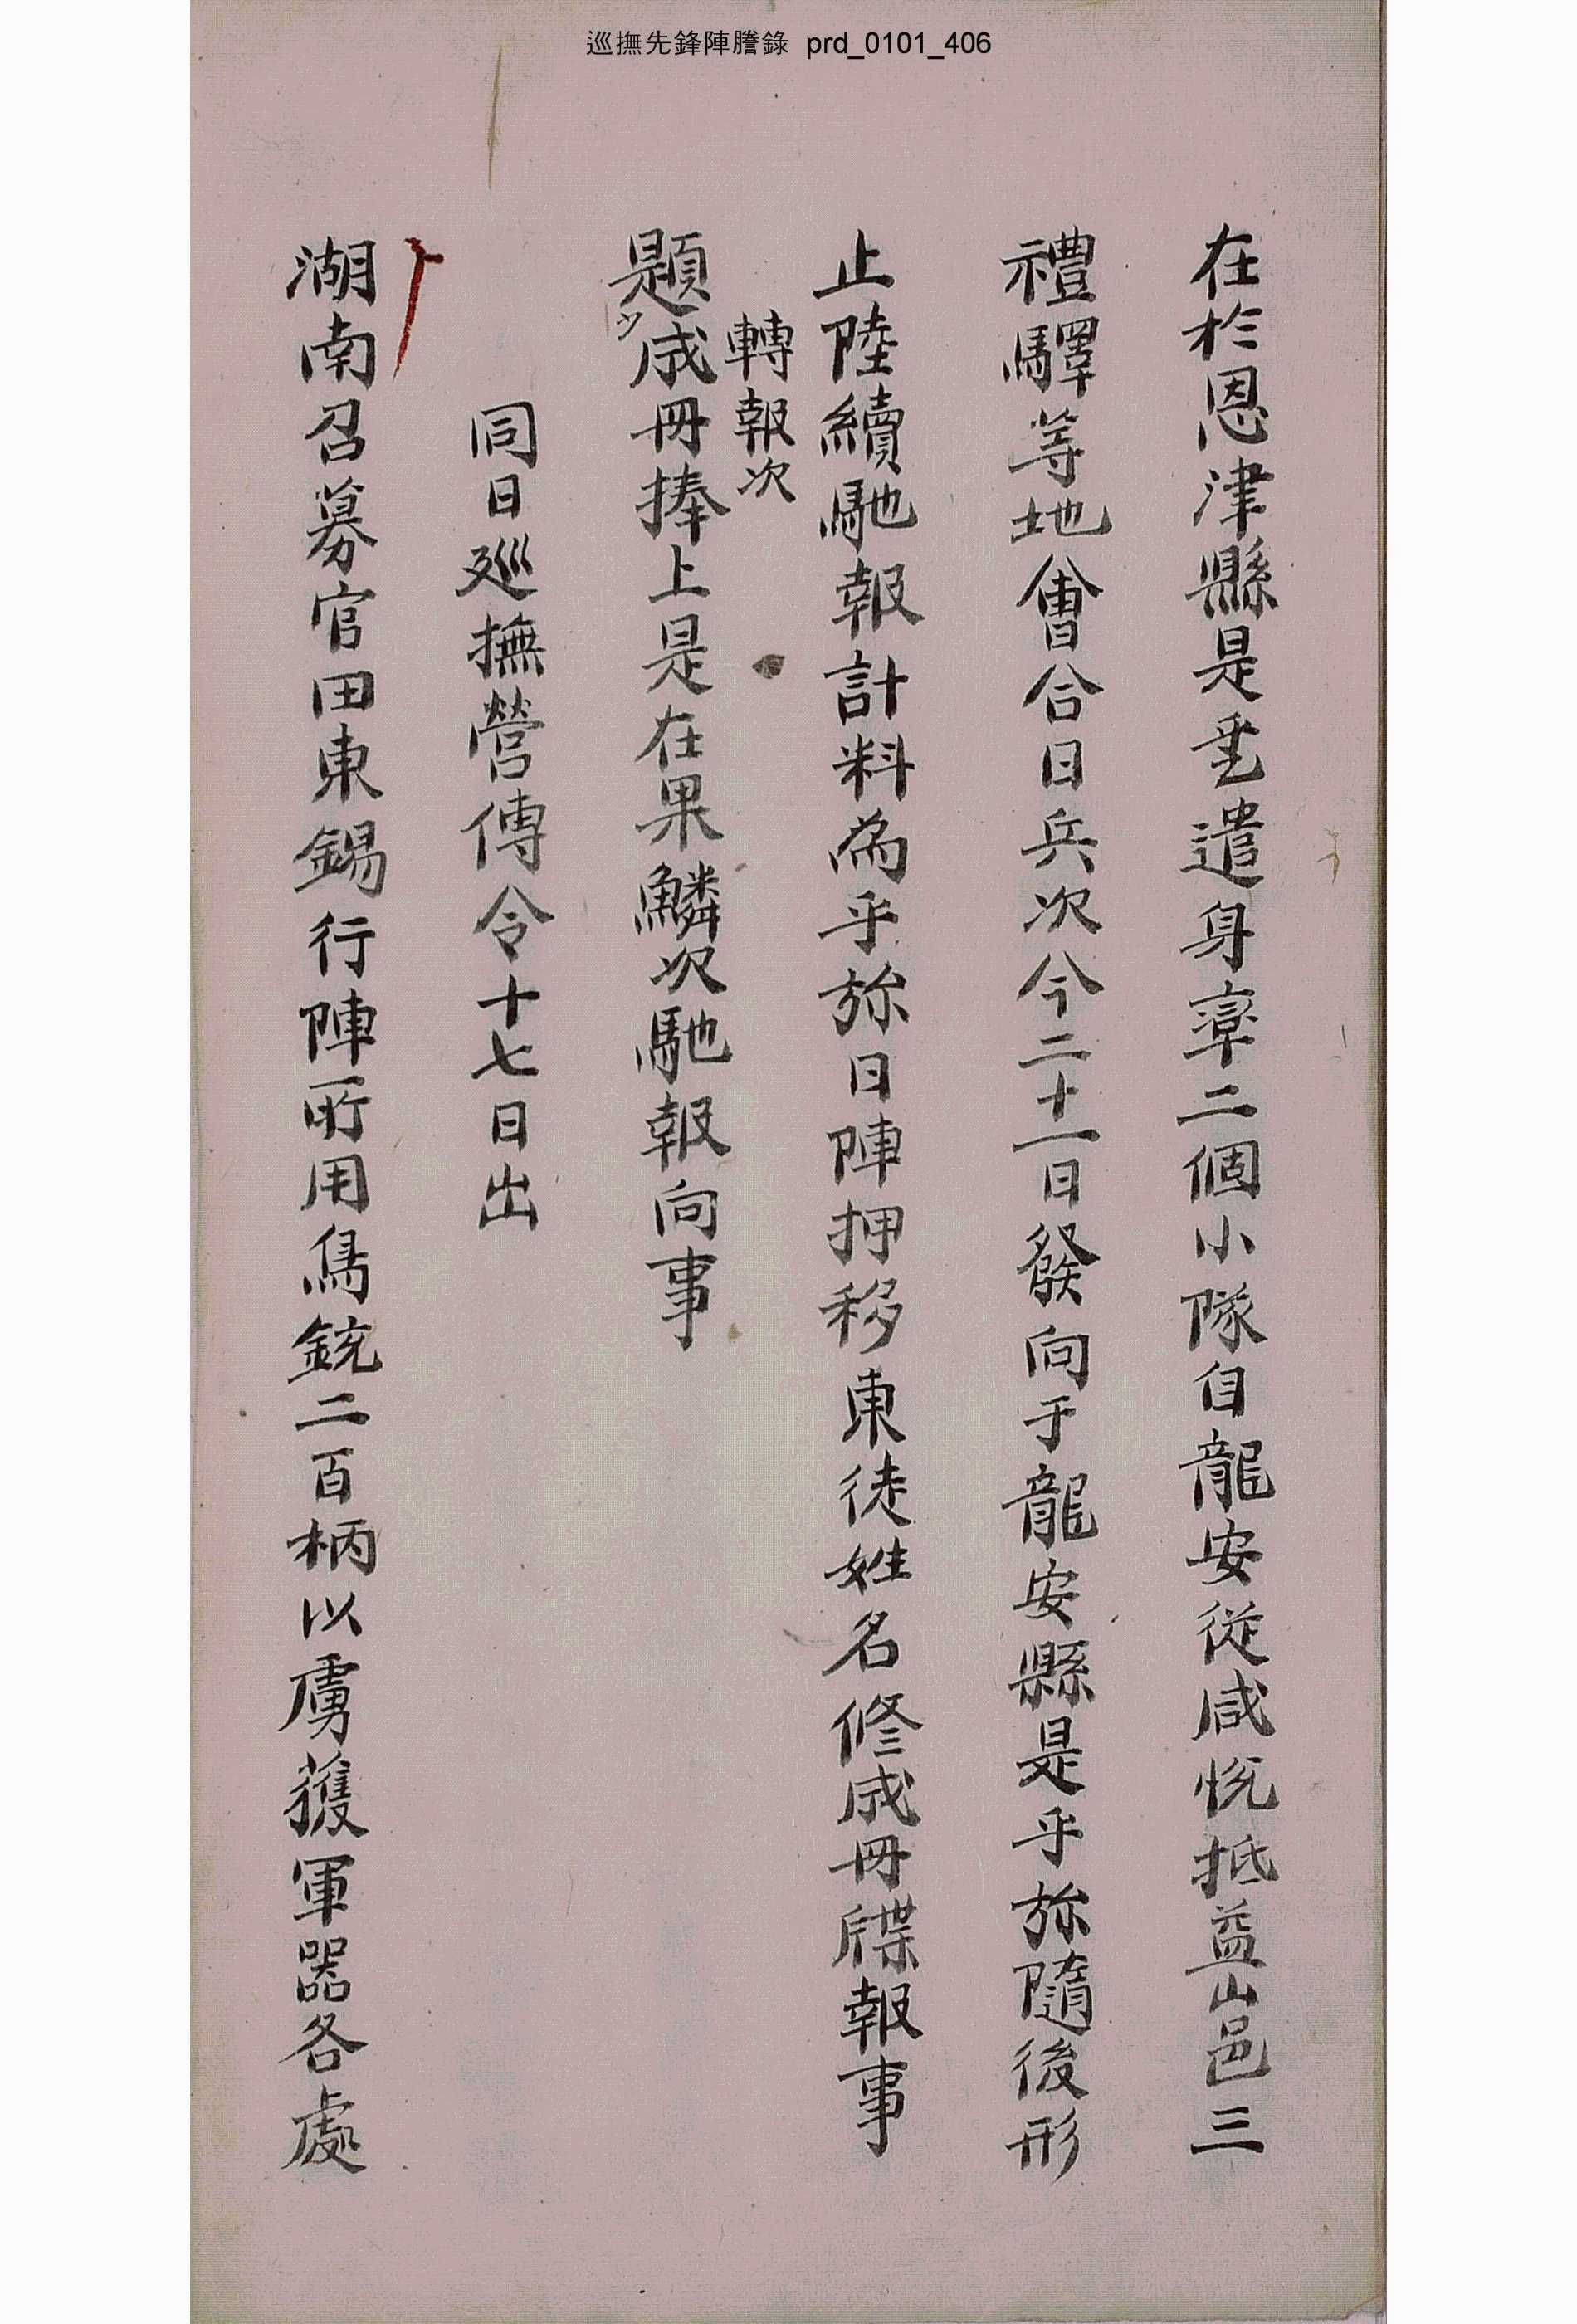 巡撫先鋒陣謄錄 prd_0101_406
在於恩津縣是乎遣身率二個小隊自龍安從咸悅抵益山邑三
禮驛等地會合日兵次今二十一日發向于龍安縣是乎旀隨後形
止陸續馳報計料為乎旀日陣押移東徒姓名修成冊牒報事
轉報次
題 成冊捧上是在果鱗次馳報向事
同日巡撫營傳令十七日出
湖南召募官田東錫行陣所用鳥銃二百柄以虜獲軍器各處